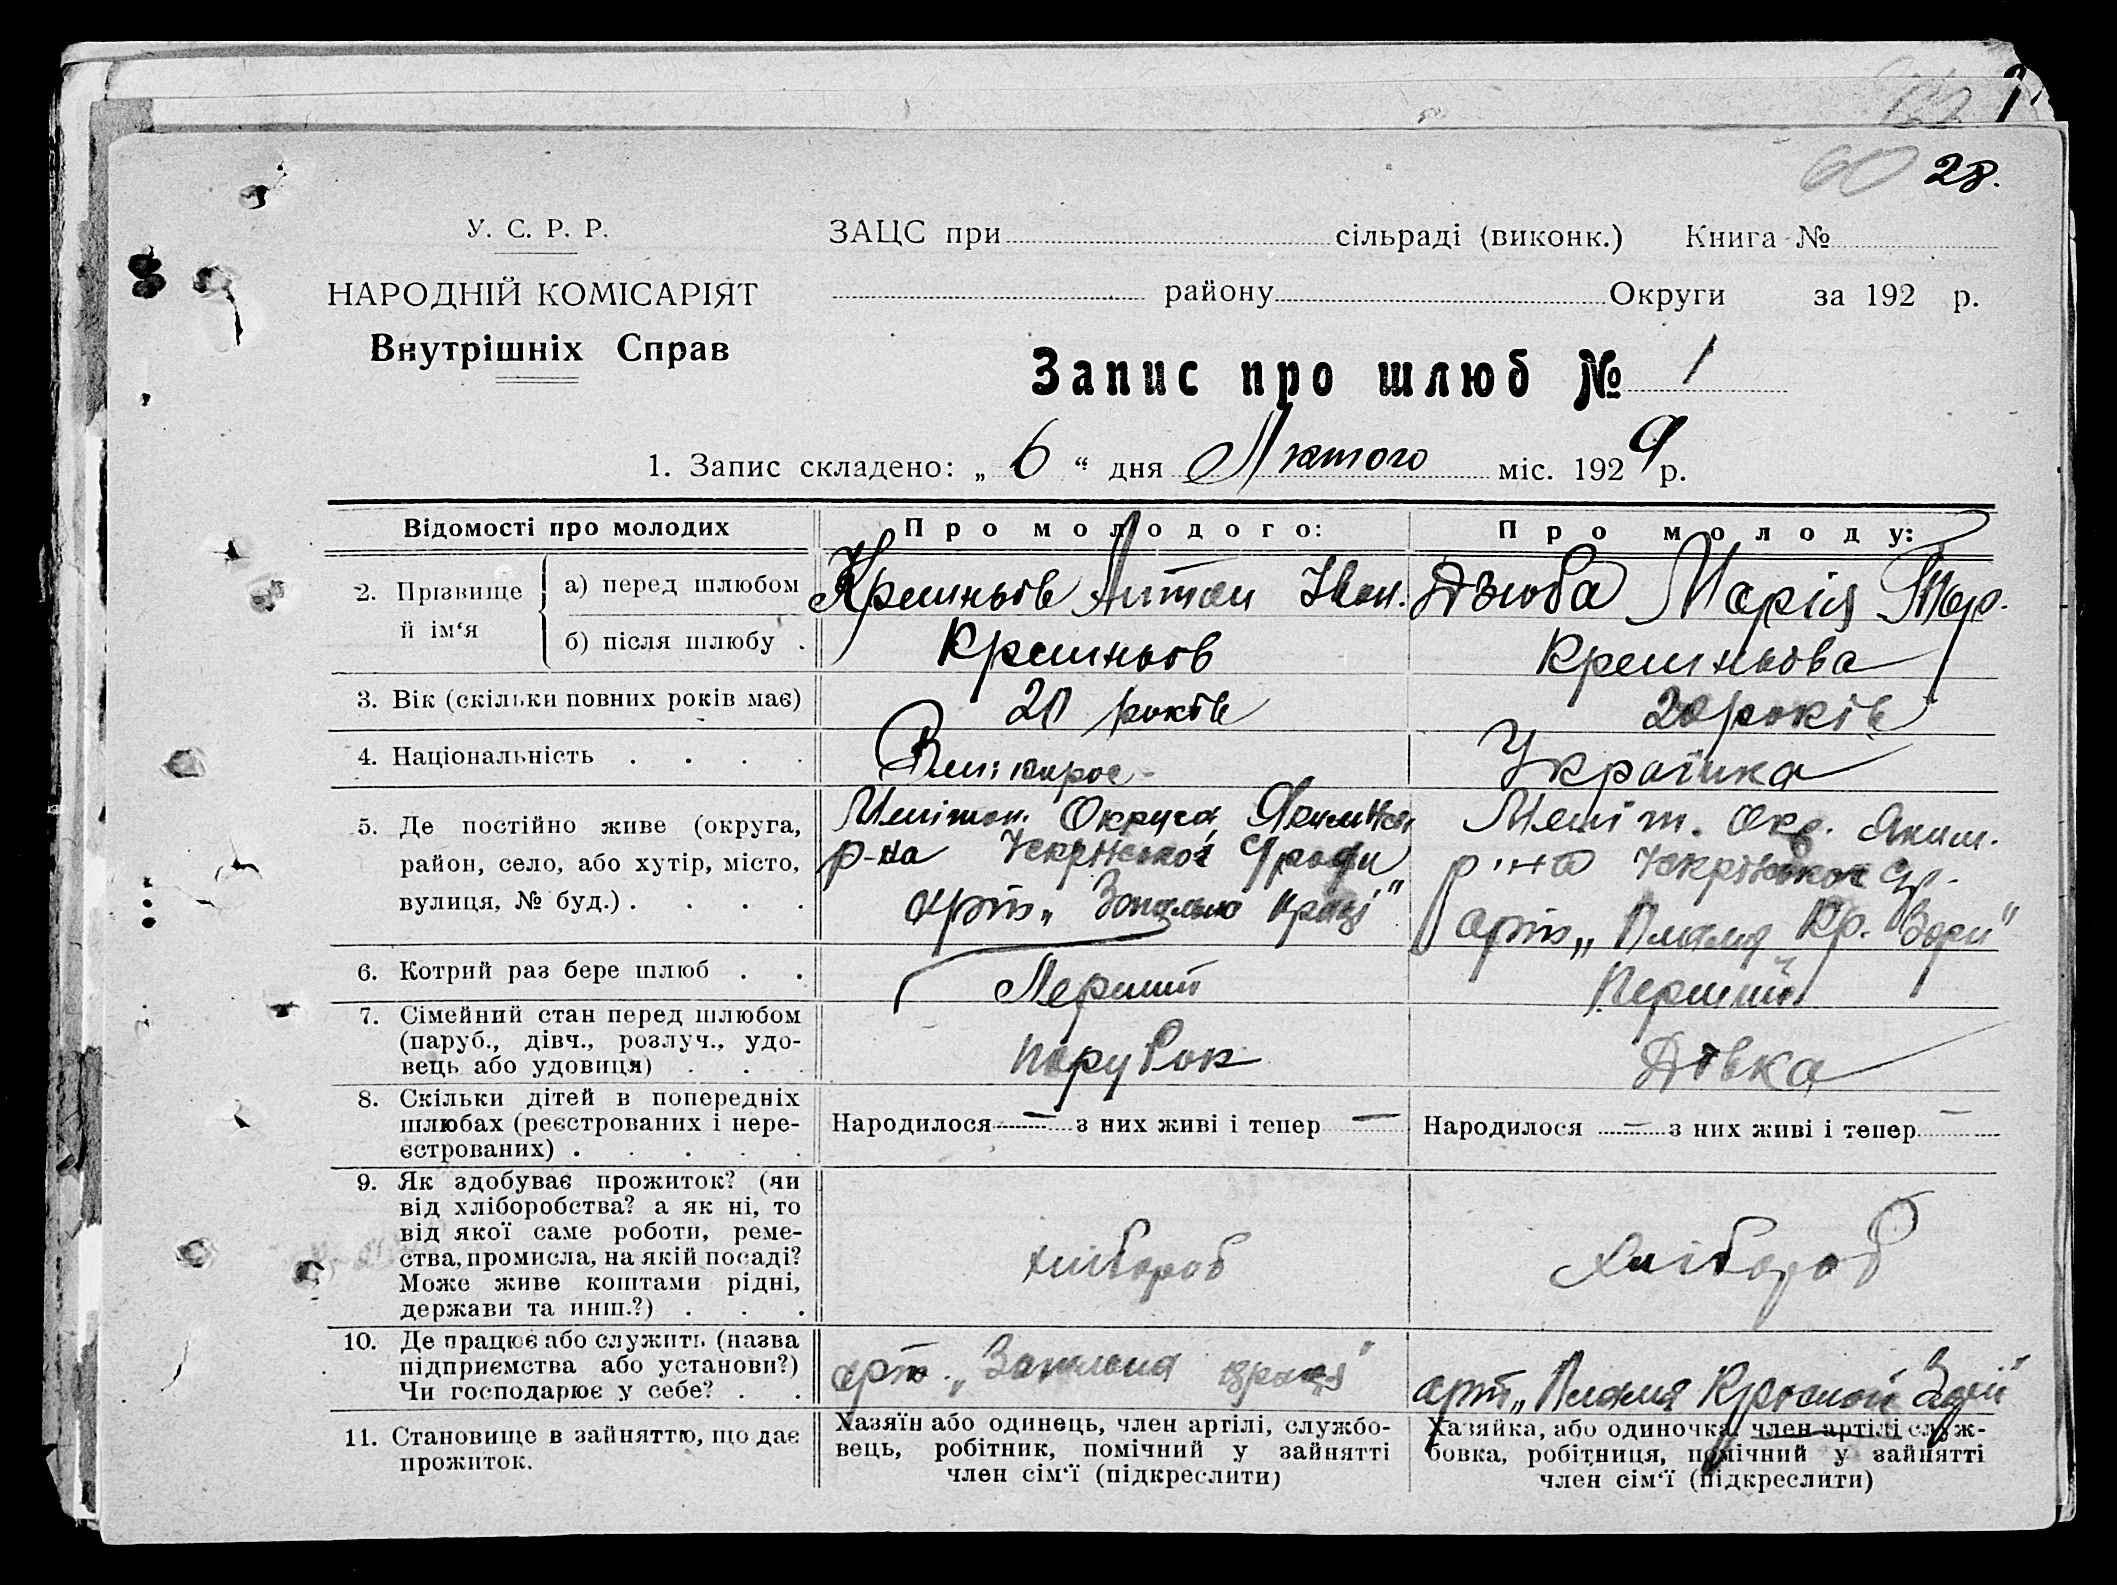 28.
У. С. Р. Р.
НАРОДНІЙ КОМІСАРІЯТ
Внутрішніх Справ
ЗАЦС при сільраді (виконк.) Книга №
району Округи за 192 р.
Запис про шлюб № 1
1. Запис складено: „ 6 “ дня Лютого міс. 1929 р.
Відомості про молодих
Про молодого:
Про молоду:
2. Прізвище й ім‘я
а) перед шлюбом
Антон Іван.
Дзюба Марія
б) після шлюбу .
3. Вік (скільки повних років має)
20 років
20 років
4. Національність . . . .
Українка
5. Де постійно живе (округа,
район, село, або хутір, місто,
вулиця, № буд.) . . . .
Меліт. Округа
р-на
арт.
Меліт. Окр. Яким.
р-на
арт. „ Пламя Кр. Зори“
6. Котрий раз бере шлюб . .
Перший
Перший
7. Сімейний стан перед шлюбом
(паруб., дівч., розлуч., удо-
вець або удовиця) . . .
парубок
Дівка
8. Скільки дітей в попередніх
шлюбах (реєстрованих і нере-
єстрованих) . . . . .
Народилося — з них живі і тепер —
Народилося — з них живі і тепер —
9. Як здобуває прожиток? (чи
від хліборобства? а як ні, то
від якої саме роботи, реме-
ства, промисла, на якій посаді?
Може живе коштами рідні,
держави та инш.?) . . .
хлібороб
Хлібороб
10. Де працює або служить (назва
підприємства або установи?)
Чи господарює у себе? . .
арт.
арт „ Пламя Красной Зари“
11. Становище в зайняттю, що дає
прожиток.
Хазяїн або одинець, член артілі, службо-
вець, робітник, помічний у зайнятті
член сім‘ї (підкреслити)
Хазяйка, або одиночка, член артілі служ-
бовка, робітниця, помічний у зайнятті
член сім‘ї (підкреслити)